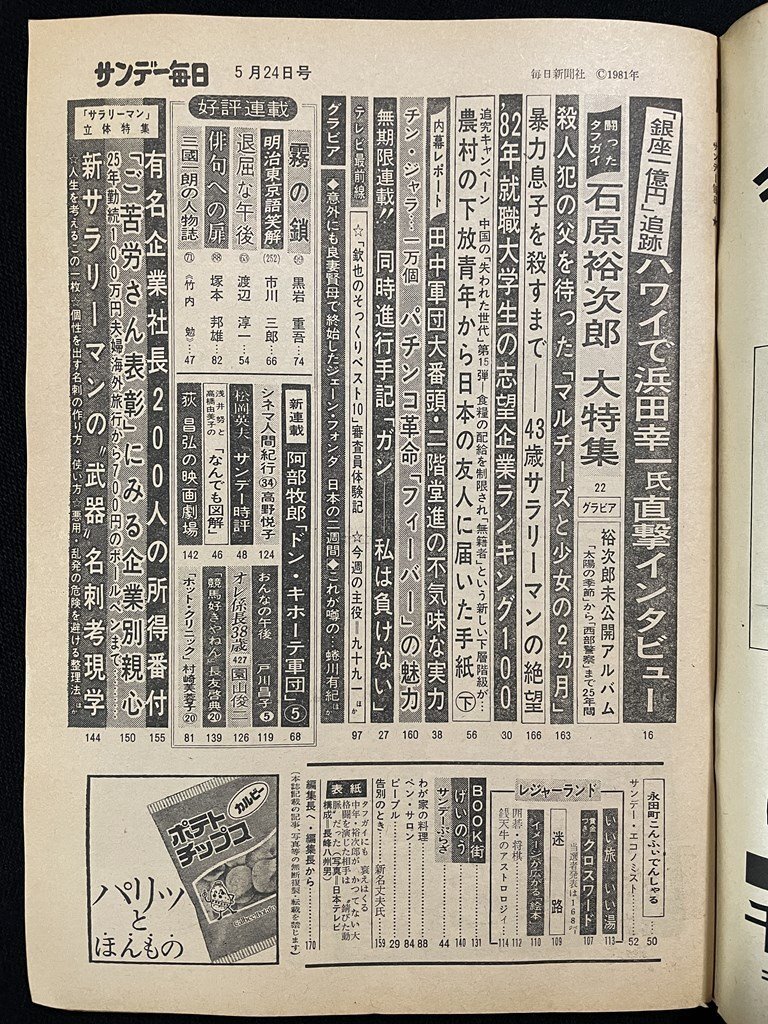 サンデー毎日 5月24日号
毎日新聞社 ©1981年
「銀座一億円」追跡 ハワイで浜田幸一氏直撃インタビュー 16
闘ったタフガイ 石原裕次郎 大特集 22
グラビア 裕次郎未公開アルバム
「太陽の季節」から「西部警察」まで25年間
殺人犯の父を待った「マルチーズと少女の2ヵ月」 163
暴力息子を殺すまで——43歳サラリーマンの絶望 166
'82年就職大学生の志望企業ランキング100 30
追究キャンペーン 中国の「失われた世代」第15弾 食糧の配給を制限され「無籍者」という新しい下層階級が…
農村の下放青年から日本の友人に届いた手紙 下 56
内幕レポート 田中軍団大番頭・二階堂進の不気味な実力 38
チン・ジャラ…一万個 パチンコ革命「フィーバー」の魅力 160
無期限連載!! 同時進行手記「ガン——私は負けない」 27
テレビ最前線 ☆「欽也のそっくりベスト10」審査員体験記 ☆今週の主役=九十九一 ほか 97
グラビア ◆意外にも良妻賢母で終始したジェーン・フォンダ 日本の二週間 ◆これが噂の…蜷川有紀 ほか
好評連載
霧の鎖 黒岩重吾…74
明治東京語笑解 (252) 市川三郎…66
退屈な午後 渡辺淳一…54
俳句への扉 塚本邦雄…82
三國一朗の人物誌 71 《竹内勉》…47
新連載 阿部牧郎「ドン・キホーテ軍団」⑤ 68
シネマ人間紀行 34 高野悦子 124
松岡英夫 サンデー時評 48
浅井勢と高橋由美子の「なんでも図解」 46
荻昌弘の映画劇場 142
おんなの午後 戸川昌子⑤ 119
オレ係長38歳 427 園山俊二 126
「競馬好きやねん」長友啓典⑳ 139
「ホット・クリニック」村崎芙蓉子⑳ 81
「サラリーマン」立体特集
有名企業社長200人の所得番付 155
「ご苦労さん表彰」にみる企業別親心 150
25年勤続・100万円夫婦海外旅行から700円のボールペンまで……
新サラリーマンの“武器”名刺考現学 144
☆人生を考えるこの一枚 ☆個性を出す名刺の作り方・使い方 ☆悪用・乱発の危険を避ける整理法 ほか
永田町こんふぃでんしゃる 50
サンデー・エコノミスト 52
レジャーランド
いい旅いい湯 113
賞金つき クロスワード 107
当選者発表は168ページ
迷路 109
イメージが広がる「絵本」 110
囲碁・将棋 112
銭天牛のアストロロジィ 114
BOOK街 131
げいのう 140
サンデーぷらざ 44
わが家の料理 88
ペン・サロン 84
ピープル 29
告別のとき……新名丈夫氏 159
表紙
タフガイにも 哀えはくる
中年・裕次郎が かつてない大
格闘を演じた相手は “錆びた動
脈”だった(写真=日本テレビ
構成=長峰八州男)
編集長へ・編集長から 170
(本誌記載の記事、写真等の無断複製、転載を禁じます)
カルビー
ポテトチップス
パリッと
ほんもの